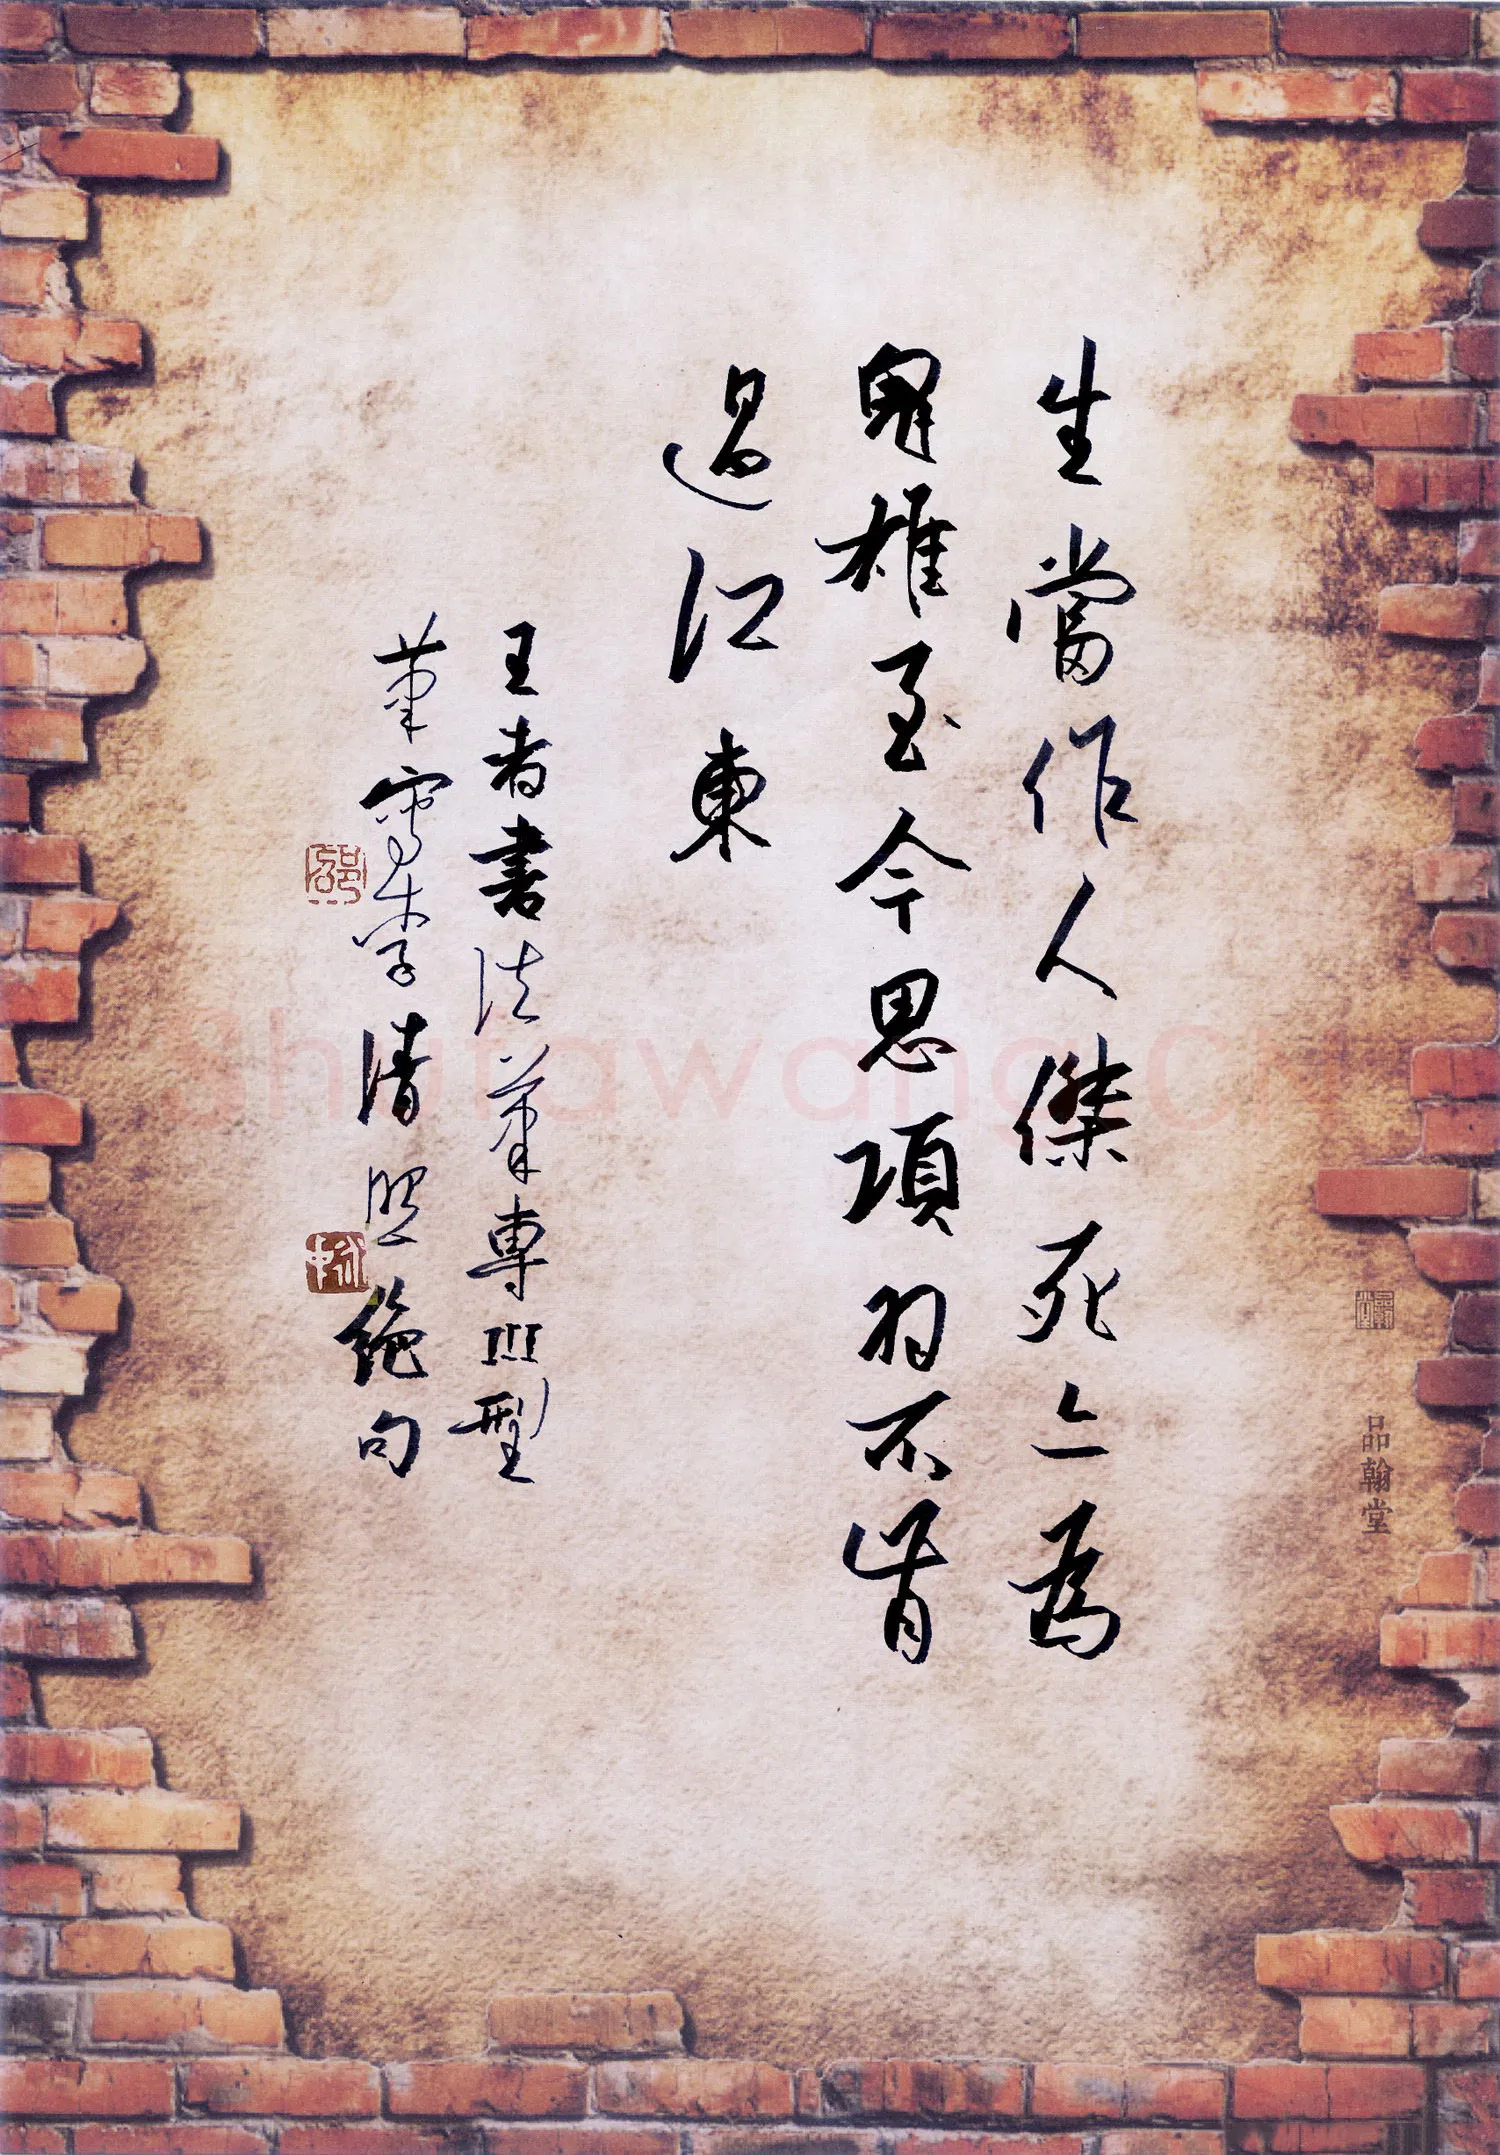 品翰堂
生當作人傑死亦為
鬼雄至今思項羽不肯
過江東
王者書法筆專III型
筆寫李清照絕句
Shufawang.CN